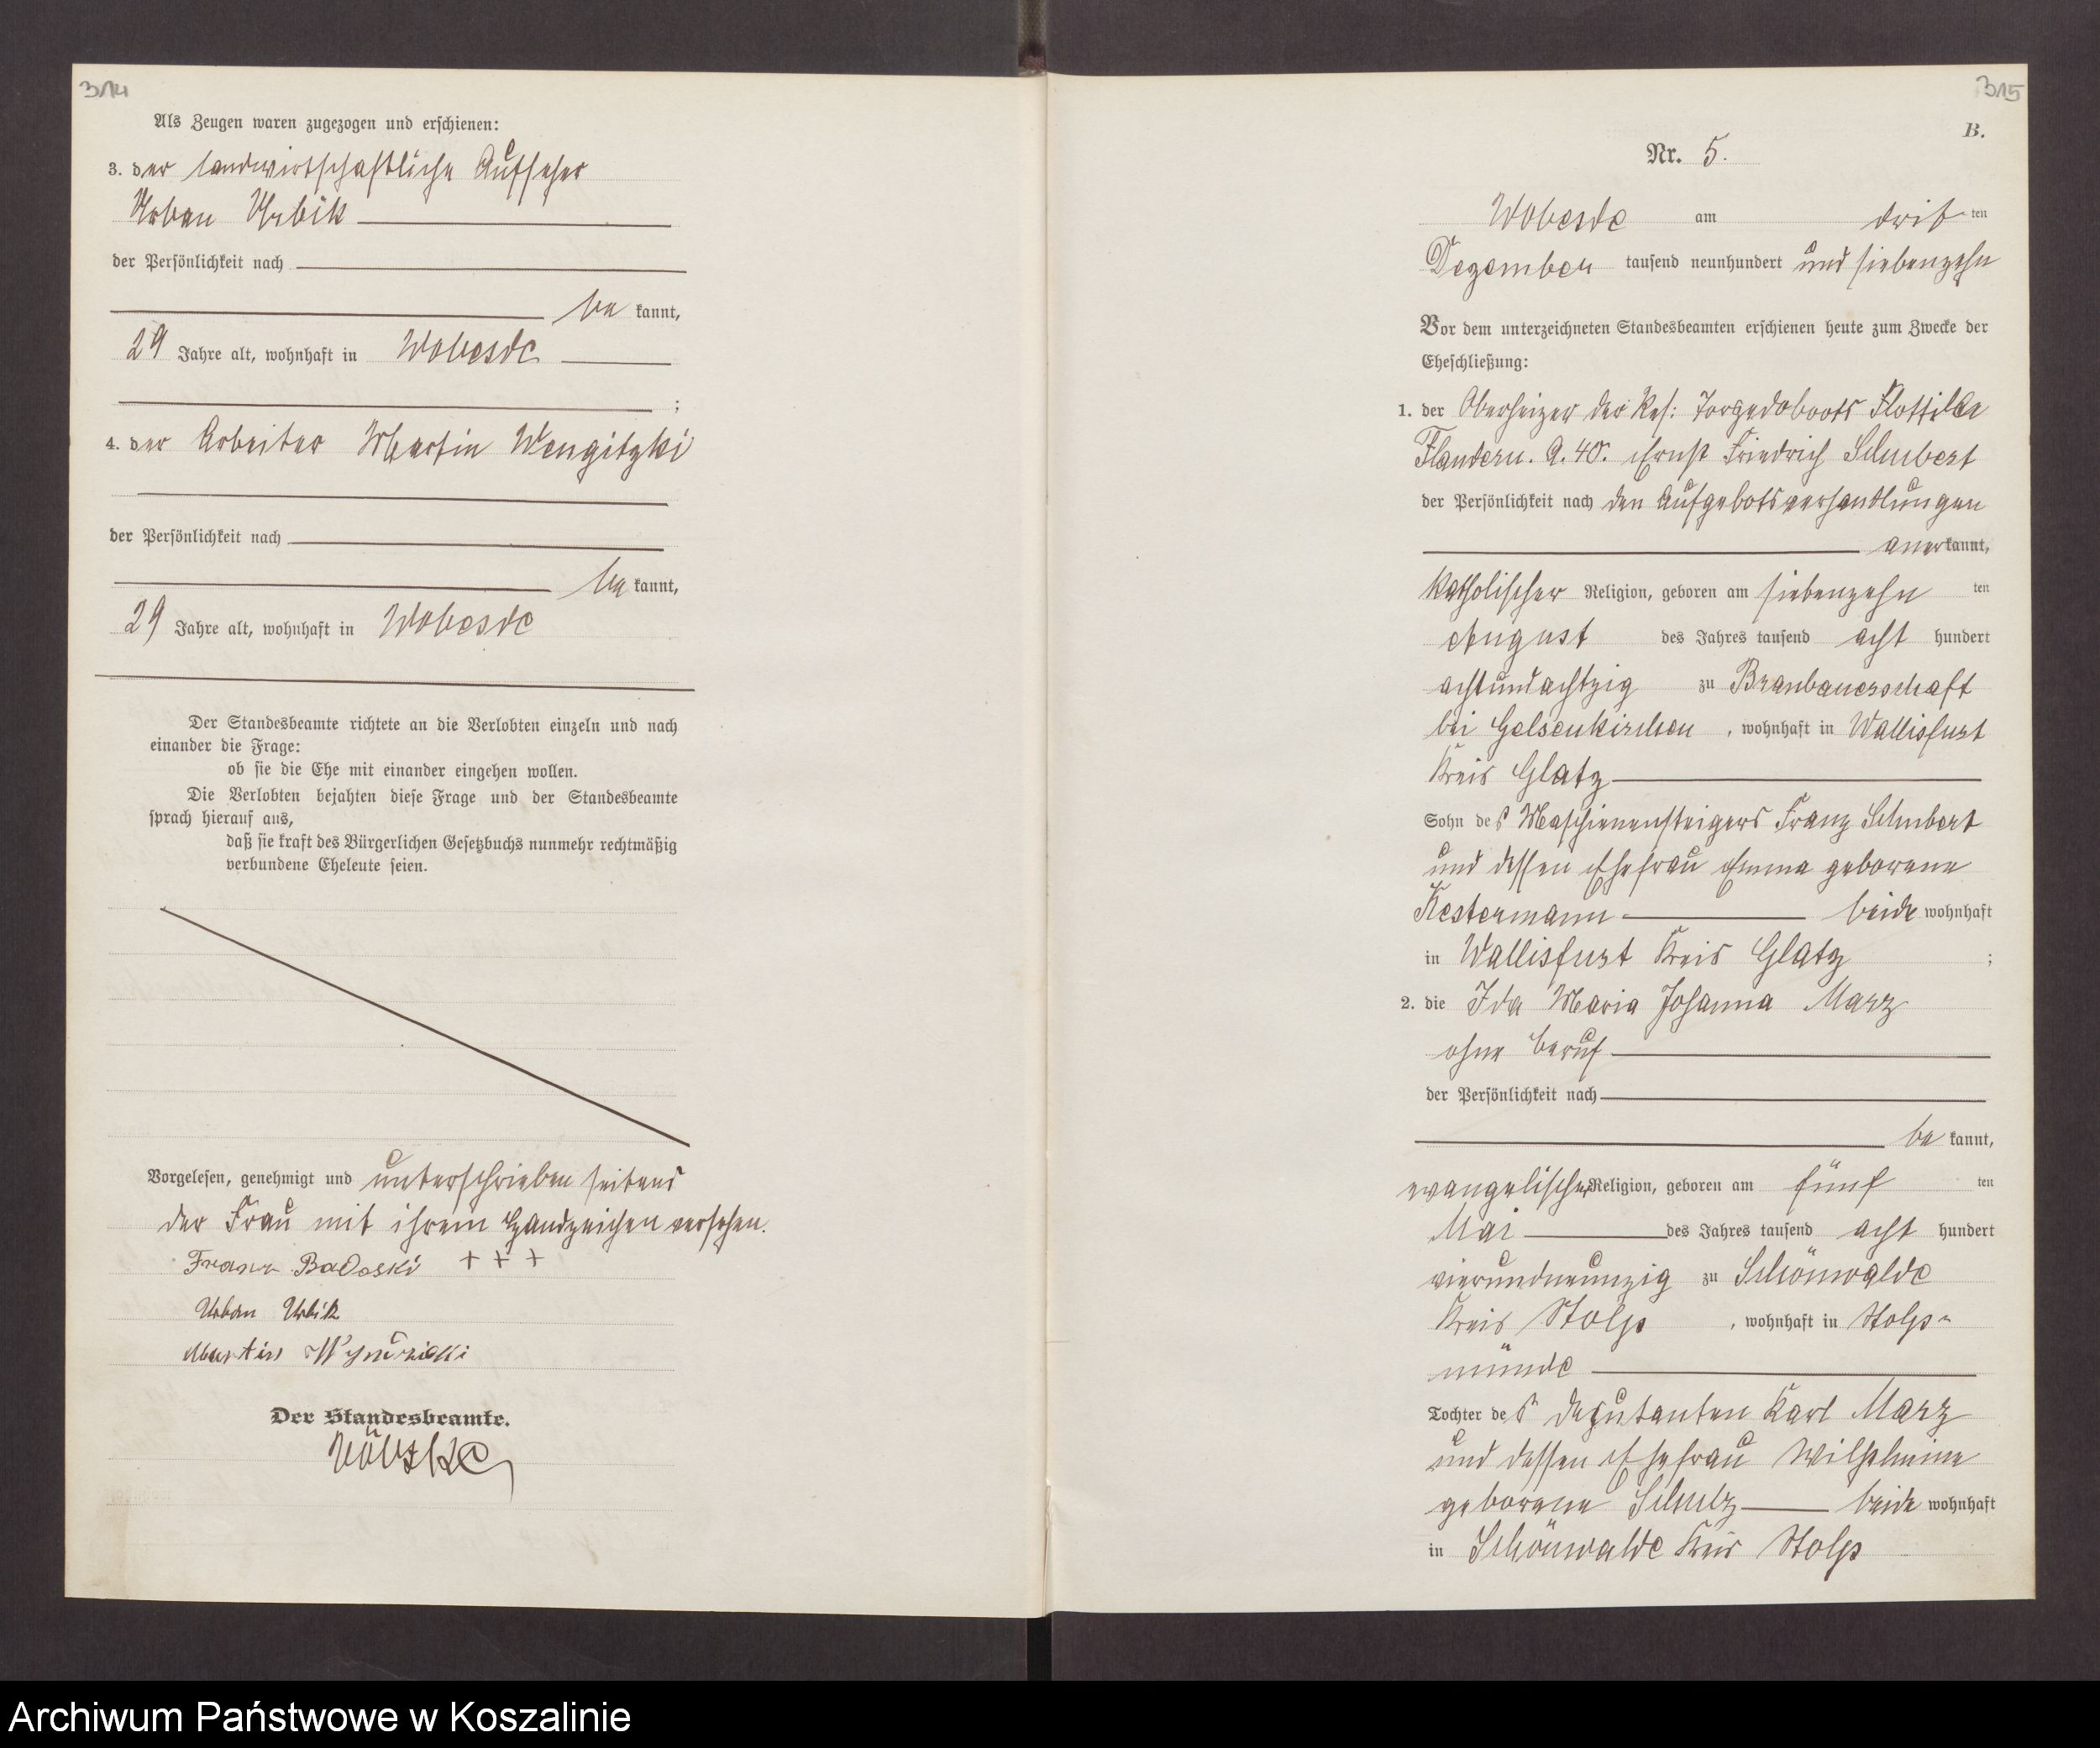 314
Als Zeugen waren zugezogen und erschienen:
3. der landwirtschaftliche Aufseher
Urban Urbik
der Persönlichkeit nach
be kannt,
29 Jahre alt, wohnhaft in Wobesde
;
4. der Arbeiter Martin Wengitzki
der Persönlichkeit nach
be kannt,
29 Jahre alt, wohnhaft in Wobesde
Der Standesbeamte richtete an die Verlobten einzeln und nach
einander die Frage:
ob sie die Ehe mit einander eingehen wollen.
Die Verlobten bejahten diese Frage und der Standesbeamte
sprach hierauf aus,
daß sie kraft des Bürgerlichen Gesetzbuchs nunmehr rechtmäßig
verbundene Eheleute seien.
Vorgelesen, genehmigt und unterschrieben seitens
der Frau mit ihrem Handzeichen versehen.
Franz Badoski + + +
Urban Urbik
Martin
Der Standesbeamte.
315
B.
Nr. 5.
Wobesde am drit ten
Dezember tausend neunhundert und siebenzehn
Vor dem unterzeichneten Standesbeamten erschienen heute zum Zwecke der
Eheschließung:
1. der Oberheizer der Res: Torpedoboots Flottille
Flandern. A. 40. Ernst Friedrich Schubert
der Persönlichkeit nach den Aufgebotsverhandlungen
aner kannt,
katholischer Religion, geboren am siebenzehn ten
August des Jahres tausend acht hundert
achtundachtzig zu Braubauerschaft
bei Gelsenkirchen, wohnhaft in Wallisfurt
Kreis Glatz
Sohn des Maschienensteigers Franz Schubert
und dessen Ehefrau Emma geborene
Kestermann beide wohnhaft
in Wallisfurt Kreis Glatz ;
2. die Ida Maria Johanna Marz
ohne Beruf
der Persönlichkeit nach
be kannt,
evangelischer Religion, geboren am fünf ten
Mai des Jahres tausend acht hundert
vierundneunzig zu Schönwalde
Kreis Stolp, wohnhaft in Stolp-
münde
Tochter des Deputanten Karl Marz
und dessen Ehefrau Wilhelmine
geborene Schulz beide wohnhaft
in Schönwalde Kreis Stolp
Archiwum Państwowe w Koszalinie